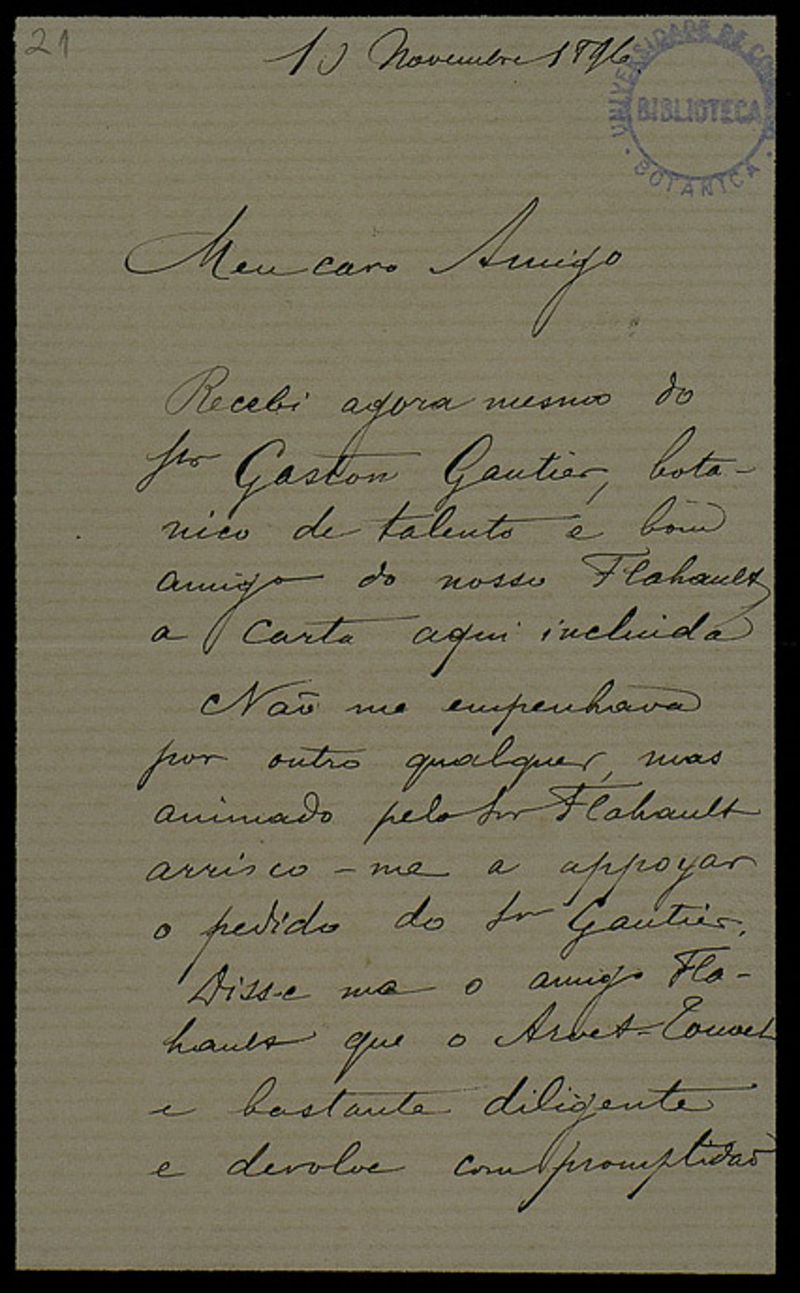 21
Novembre 1896
UNIVERSIDADE DE COIMBRA
BIBLIOTECA
BOTANICA
Meu caro Amigo
Recebi agora mesmo do
Sr Gaston Gautier, bota-
nico de talento e bom
amigo do nosso Flahault,
a carta aqui incluida
Não me empenhava
por outro qualquer, mas
animado pelo Sr Flahault
arrisco-me a appoyar
o pedido do Sr Gautier.
Disse me o amigo Fla-
hault que o Arvet-Touvet
e bastante diligente
e devolve com promptidão